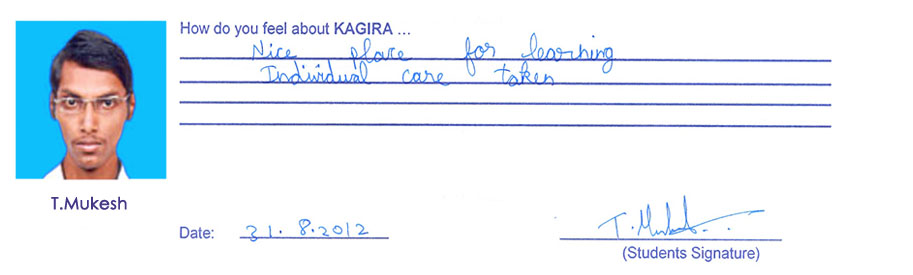 How do you feel about KAGIRA ...
Nice place for learning
Individual care taken
T.Mukesh
Date: 31.8.2012
T.Mukesh
(Students Signature)